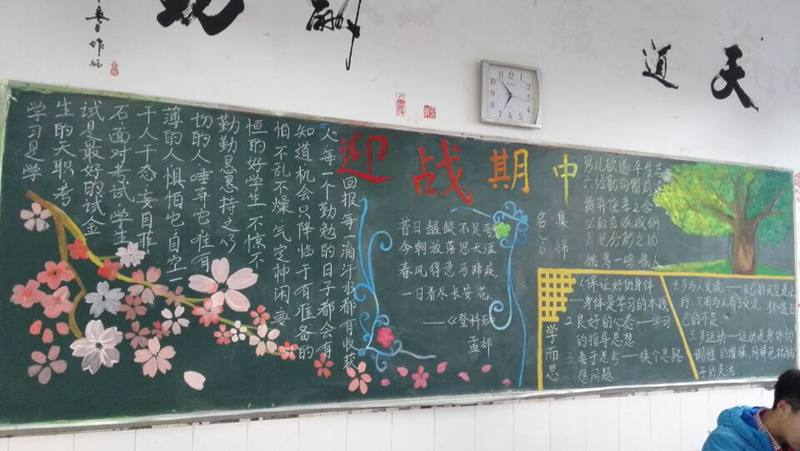 天道
学习是学
生的天职 考
试是最好的试金
石 面对考试 学生
千人千态 妄自菲
薄的人惧怕它 自空一
切的人唾弃它 唯有
勤勤恳恳持之以
恒的好学生 不惊不
怕不乱不燥 气定神闲 要
知道机会只降临于有准备的
人 每一个勤勉的日子都会有
回报每一滴汗水都有收获
迎战期中
昔日龌龊不足夸
今朝放荡思无涯
春风得意马蹄疾
一日看尽长安花
——《登科后》
孟郊
名言
集锦
男儿欲遂平生
六经勤向窗前
学而思
1.保证好的身体
—身体是学习的本钱
2.良好的心态——学习
的指导思想
3.善于思考——
想问题
4.多与人交流——
的,只有与人有
5.多运动——运动是身体